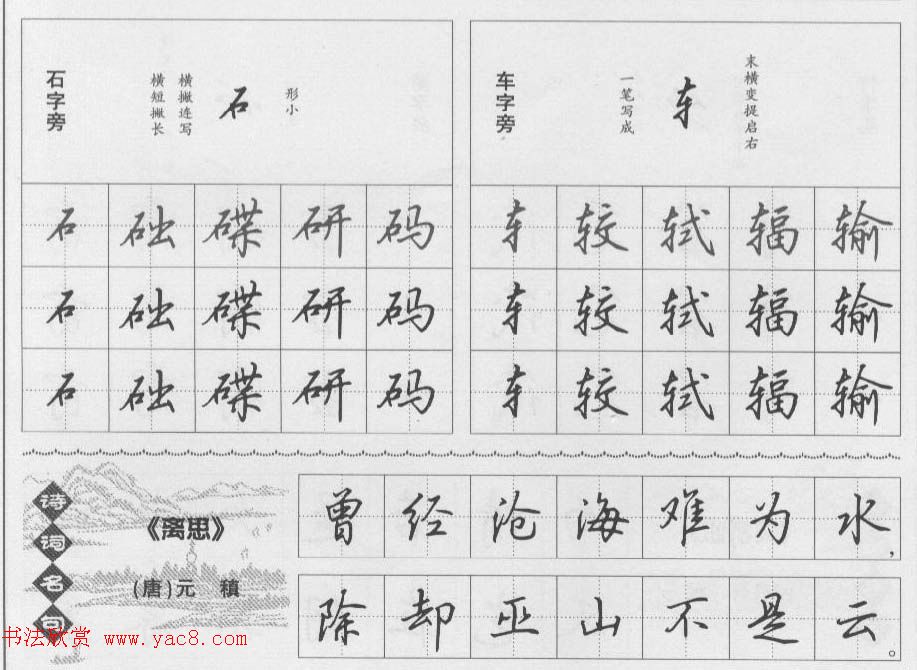 石字旁
横短撇长
横撇连写
石
形小
石 础 碟 研 码
石 础 碟 研 码
石 础 碟 研 码
车字旁
一笔写成
车
末横变提启右
车 较 轼 辐 输
车 较 轼 辐 输
车 较 轼 辐 输
诗词名句
《离思》
(唐)元 稹
曾经沧海难为水,
除却巫山不是云。
书法欣赏 www.yac8.com